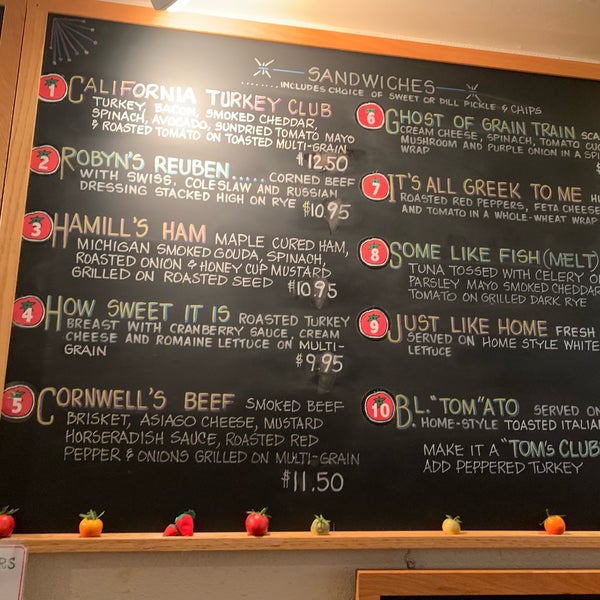 SANDWICHES
........INCLUDES CHOICE OF SWEET OR DILL PICKLE & CHIPS
1 CALIFORNIA TURKEY CLUB
TURKEY, BACON, SMOKED CHEDDAR,
SPINACH, AVOCADO, SUNDRIED TOMATO MAYO
& ROASTED TOMATO ON TOASTED MULTI-GRAIN
$12.50
2 ROBYN'S REUBEN..... CORNED BEEF
WITH SWISS, COLESLAW AND RUSSIAN
DRESSING STACKED HIGH ON RYE $10.95
3 HAMILL'S HAM MAPLE CURED HAM,
MICHIGAN SMOKED GOUDA, SPINACH,
ROASTED ONION & HONEY CUP MUSTARD
GRILLED ON ROASTED SEED $10.95
4 HOW SWEET IT IS ROASTED TURKEY
BREAST WITH CRANBERRY SAUCE, CREAM
CHEESE AND ROMAINE LETTUCE ON MULTI-
GRAIN
$9.95
5 CORNWELL'S BEEF SMOKED BEEF
BRISKET, ASIAGO CHEESE, MUSTARD
HORSERADISH SAUCE, ROASTED RED
PEPPER & ONIONS GRILLED ON MULTI-GRAIN
$11.50
6 GHOST OF GRAIN TRAIN
CREAM CHEESE, SPINACH, TOMATO
MUSHROOM AND PURPLE ONION IN A
WRAP
7 IT'S ALL GREEK TO ME
ROASTED RED PEPPERS, FETA CHEESE
AND TOMATO IN A WHOLE-WHEAT WRAP
8 SOME LIKE FISH (MELT)
TUNA TOSSED WITH CELERY
PARSLEY MAYO SMOKED CHEDDAR
TOMATO ON GRILLED DARK RYE
9 JUST LIKE HOME FRESH
SERVED ON HOME STYLE WHITE
LETTUCE
10 B.L."TOM"ATO SERVED ON
HOME-STYLE TOASTED
MAKE IT A "TOM'S CLUB
ADD PEPPERED TURKEY
RS